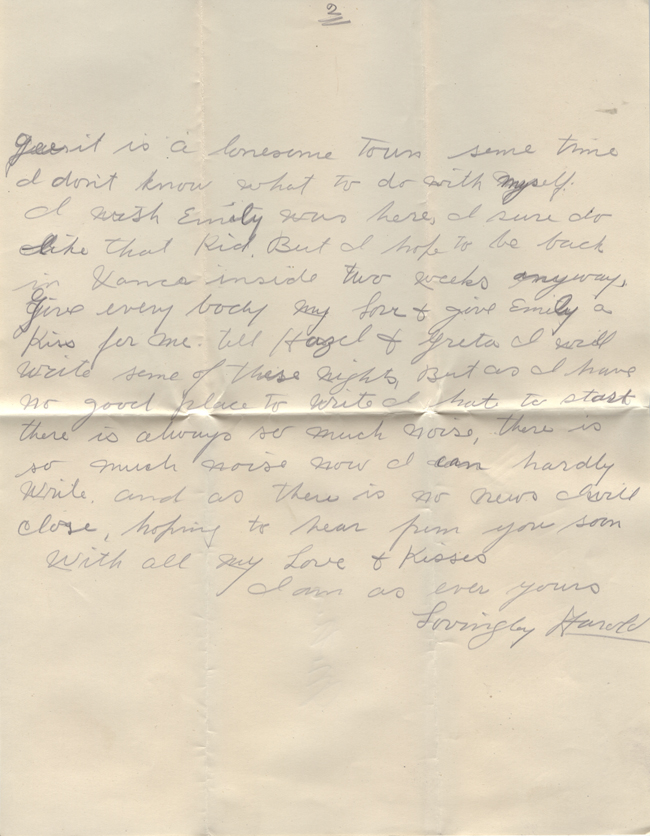 2
it is a lonesome Town some time
I don't know what to do with myself.
I wish Emily was here, I sure do
like that Kid. But I hope to be back
in inside two weeks anyway,
Give every body my Love & give Emily a
Kiss for me. tell Hazel & Greta I will
write some of these nights, But as I have
no good place to write I hate to start
there is always so much noise, there is
so much noise now I can hardly
write. and as there is no news I will
close, hoping to hear from you soon
With all my Love & Kisses
I am as ever yours
Lovingley Harold